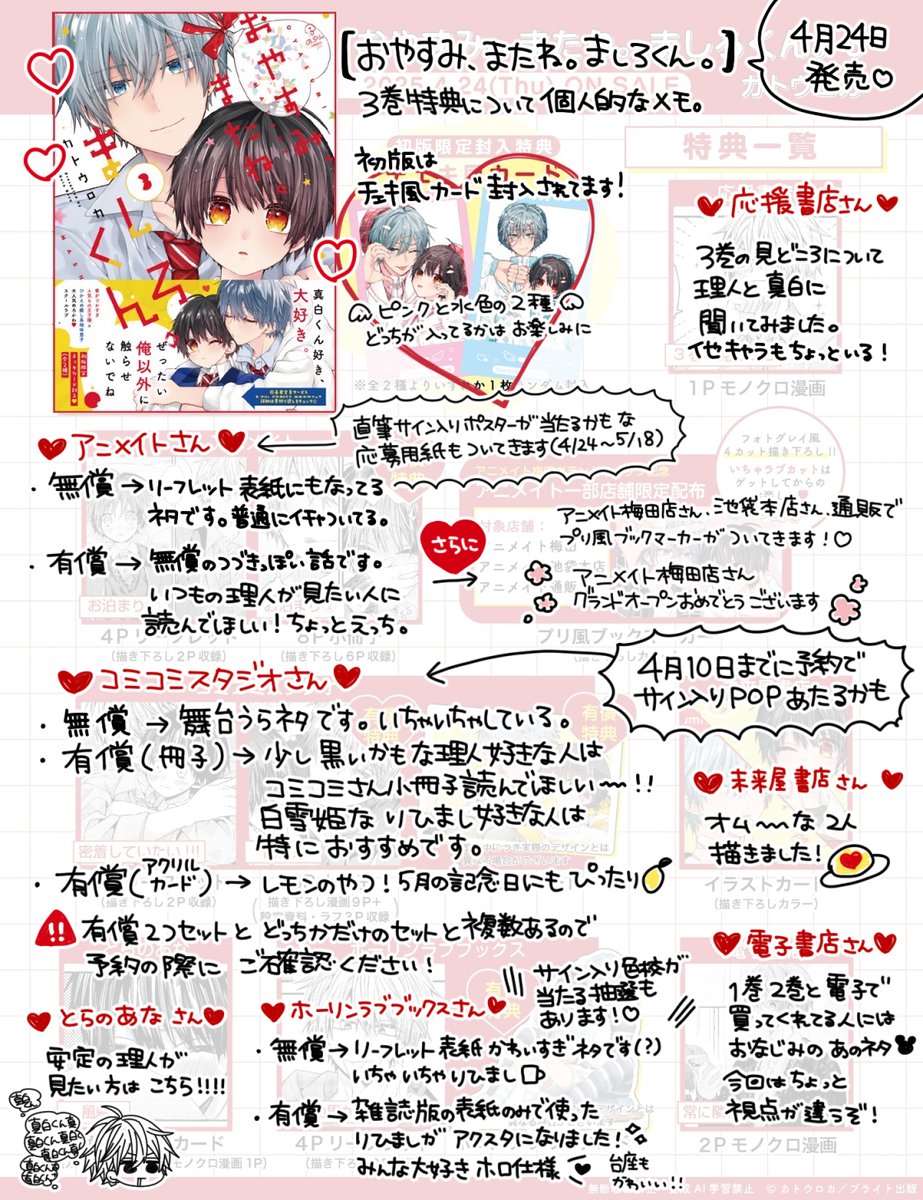 [おやすみ、またね。ましろくん。]
4月24日
発売♡
3巻特典について個人的なメモ。
2025.4.24(Thu) ON SALE
カトウロカ
おやすみ、
またね。
ましろくん。
3
カトウロカ
真白くん好き、
大好き。
ぜったい
俺以外に
触らせ
ないでね
初版限定封入特典
初版は
チェキ風カード封入されてます!
ピンクと水色の2種
どっちが入ってるかはお楽しみに
特典一覧
♥応援書店さん♥
3巻の見どころについて
理人と真白に
聞いてみました。
他キャラもちょっといる!
1Pモノクロ漫画
♥アニメイトさん♥
直筆サイン入りポスターが当たるかもな
応募用紙もついてきます(4/24〜5/18)
・無償→リーフレット表紙にもなってる
ネタです。普通にイチャついてる。
・有償→無償のつづきっぽい話です。
いつもの理人が見たい人に
読んでほしい!ちょっとえっち。
お泊まり
4Pリーフレット
(描き下ろし2P収録)
8P小冊子
(描き下ろし6P収録)
さらに
フォトグレイ風
4カット描き下ろし!!
いちゃラブカットは
ゲットしてからの
アニメイト一部店舗限定配布
対象店舗:
アニメイト梅田
アニメイト池袋本店
アニメイト通販
アニメイト梅田店さん、池袋本店さん、通販で
プリ風ブックマーカーがついてきます!♡
アニメイト梅田店さん
グランドオープンおめでとうございます
プリ風ブックマーカー
♥コミコミスタジオさん♥
4月10日までに予約で
サイン入りPOPあたるかも
・無償→舞台うらネタです。いちゃいちゃしている。
・有償(冊子)→少し黒いかもな理人好きな人は
コミコミさん小冊子読んでほしい〜!!
白雪姫なりひまし好きな人は
特におすすめです。
・有償(アクリルカード)→レモンのやつ!5月の記念日にもぴったり
密着していたい!!!
(描き下ろし2P収録)
(描き下ろし漫画9P+
設定資料・ラフ2P収録)
有償特典
有償特典
!!有償2つセットとどっちかだけのセットと複数あるので
予約の際にご確認ください!
♥未来屋書店さん♥
オム〜な2人
描きました!
イラストカード
(描き下ろしカラー)
♥とらのあなさん♥
安定の理人が
見たい方はこちら!!!!
♥ホーリンラブブックスさん♥
サイン入り色校が
当たる抽選も
あります!♡
・無償→リーフレット表紙かわいすぎネタです(?)
いちゃいちゃりひまし
・有償→雑誌版の表紙のみで使った
りひましがアクスタになりました!
みんな大好きホロ仕様
台座も
かわいい!!
4Pリーフレット
♥電子書店さん♥
1巻2巻と電子で
買ってくれてる人には
おなじみのあのネタ
今回はちょっと
視点が違うぞ!
2Pモノクロ漫画
©カトウロカ/ブライト出版